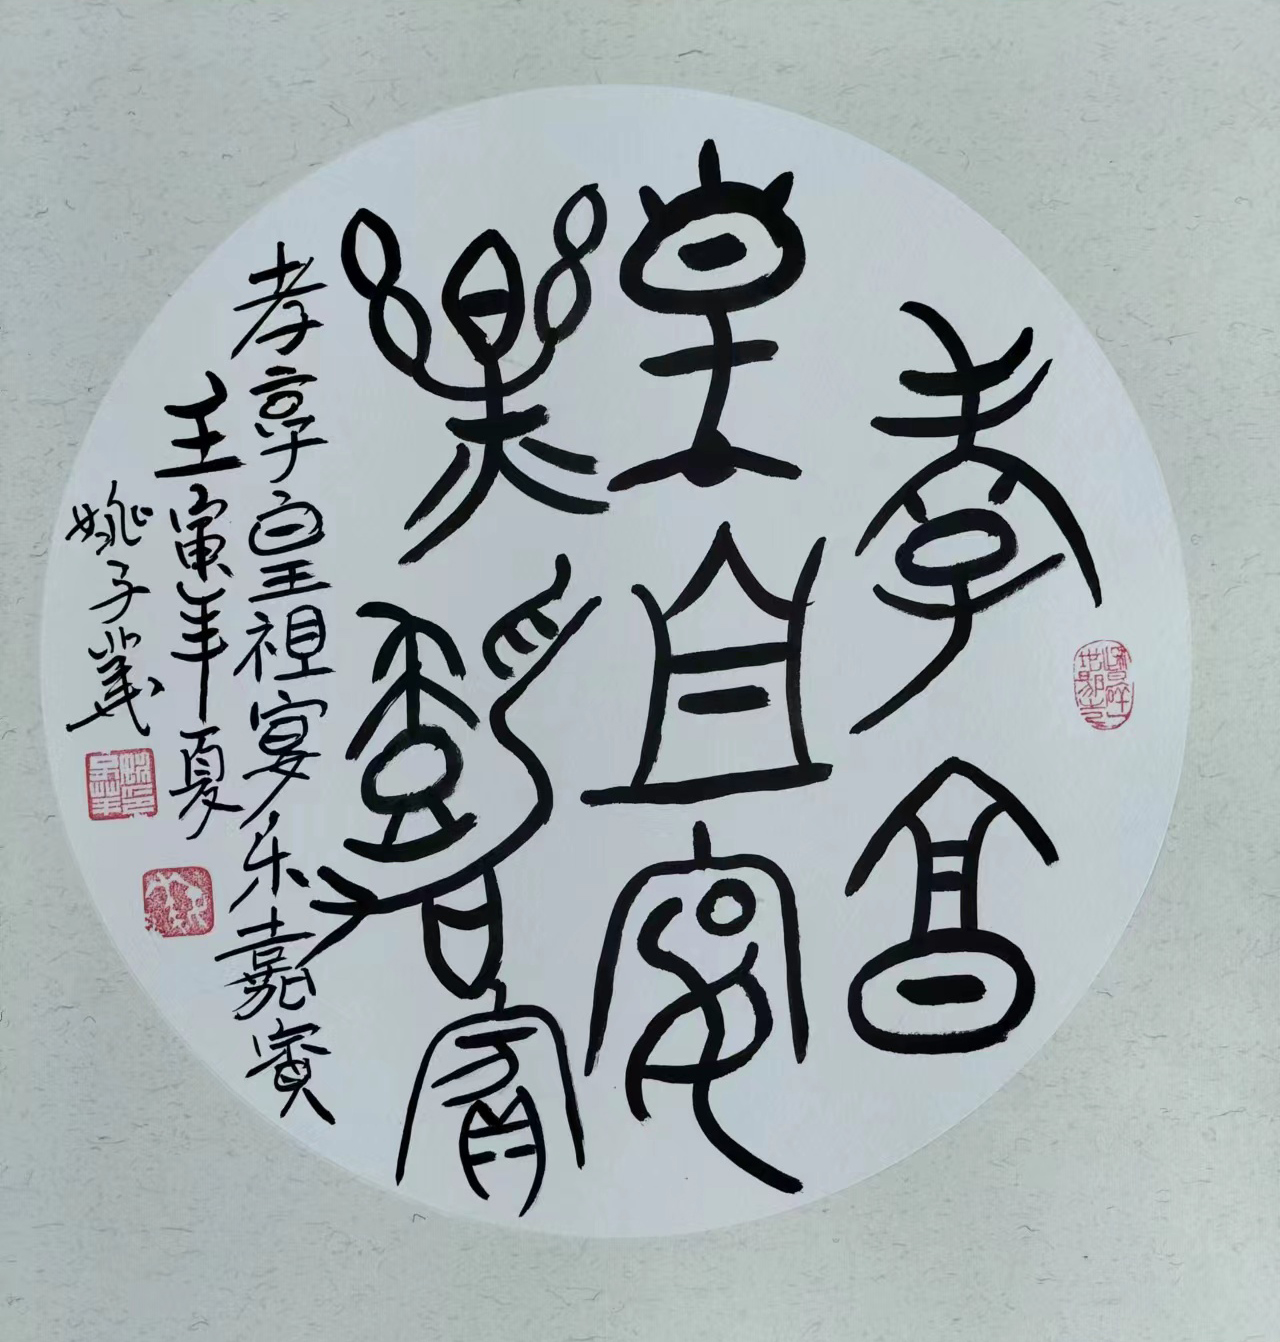 孝享
皇祖宴
樂嘉賓
孝享皇祖宴乐嘉賓
壬寅年夏
姚子